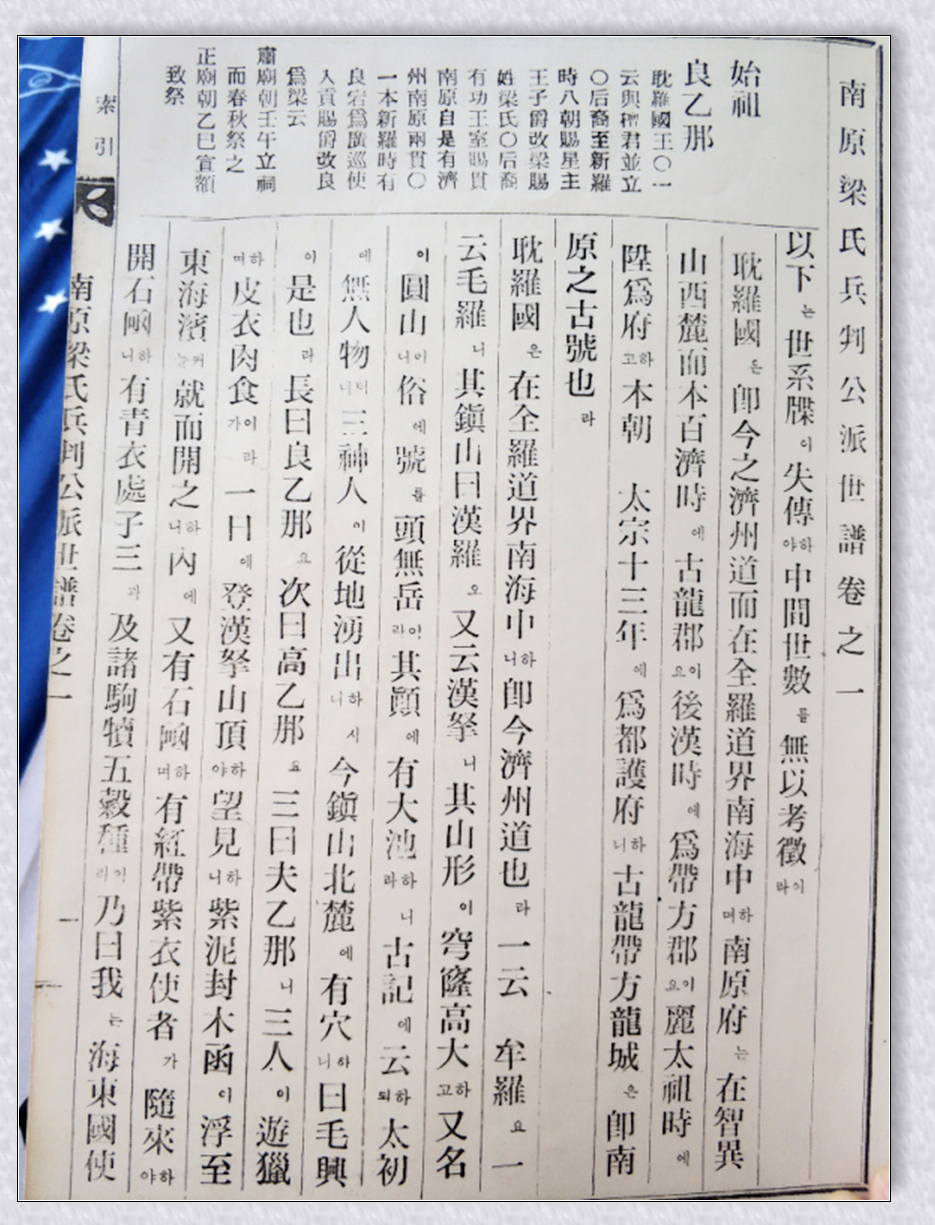 南原梁氏兵判公派世譜卷之一
始祖
良乙那
耽羅國王〇一
云與檀君並立
〇后裔至新羅
時八朝賜星主
王子爵改梁賜
姓梁氏〇后裔
有功王室賜貫
南原自是有濟
州南原兩貫〇
一本新羅時有
良宕爲廣巡使
入貢賜爵改良
爲梁云
肅廟朝壬午立祠
而春秋祭之
正廟朝乙巳宣額
致祭
以下는世系牒이失傳하야中間世數를無以考徵이라
耽羅國은卽今之濟州道而在全羅道界南海中하며南原府는在智異
山西麓而本百濟時에古龍郡이요後漢時에爲帶方郡이요麗太祖時에
陞爲府하고本朝 太宗十三年에爲都護府하니古龍帶方龍城은卽南
原之古號也라
耽羅國은在全羅道界南海中하니卽今濟州道也라一云 牟羅요一
云毛羅니其鎭山曰漢羅요又云漢拏니其山形이穹隆高大하고又名
이圓山이니俗에號를頭無岳이라其顚에有大池하라니古記에云하되太初
에無人物터니三神人이從地湧出하니시今鎭山北麓에有穴하니曰毛興
이是也라長曰良乙那요次曰高乙那요三曰夫乙那니三人이遊獵
하며皮衣肉食이가라一日에登漢拏山頂하야望見하니紫泥封木函이浮至
東海濱커늘就而開之하니內에又有石凾하며有紅帶紫衣使者가隨來하야
開石凾하니有靑衣處子三과及諸駒犢五穀種이라乃曰我는海東國使
索引
南原梁氏兵判公派世譜卷之一
一